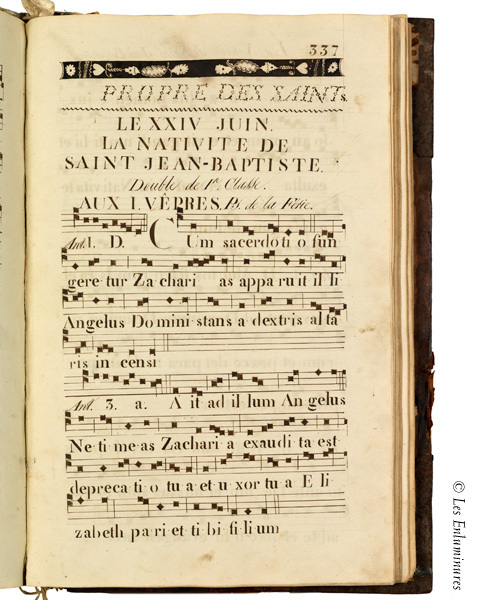 337
PROPRE DES SAINTS.
LE XXIV JUIN.
LA NATIVITE DE
SAINT JEAN-BAPTISTE.
Double de 1re Classe.
AUX I. VÊPRES. Ps. de la Férie.
Ant. 1. D. Cum sacerdoti o fun
gere tur Za chari as appa ru it il li
Angelus Do mini stans a dextris al ta
ris in censi
Ant. 3. a. A it ad il lum An gelus
Ne ti me as Zachari a exaudi ta est
depreca ti o tu a et u xor tu a E li
zabeth pa ri et ti bi fi li um
© Les Enluminures